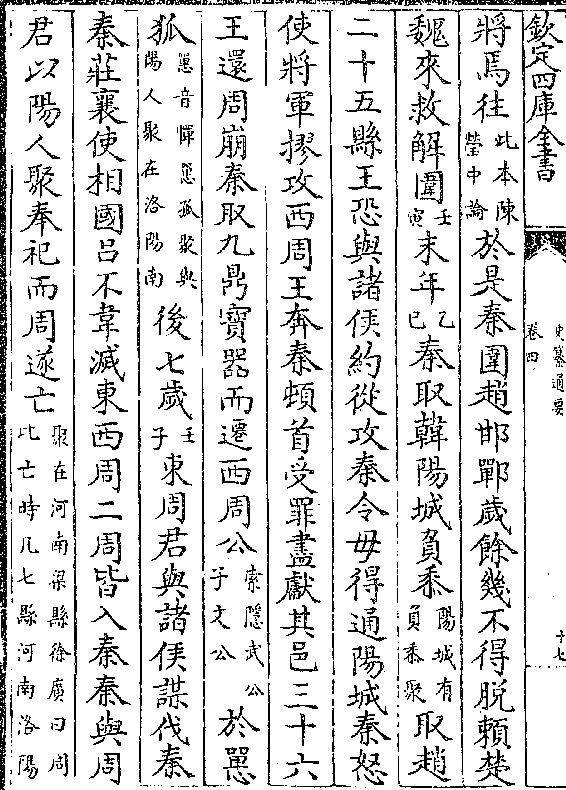 欽定四庫全書
史纂通要
卷四
十七
將焉往此本陳瑩中論於是秦圍趙邯鄲歲餘幾不得脫賴楚
魏來救解圍壬寅末年乙巳秦取韓陽城負黍陽城有負黍聚取趙
二十五縣王恐與諸侯約從攻秦令毋得通陽城秦怒
使將軍摎攻西周王奔秦頓首受罪盡獻其邑三十六
王還周崩秦取九鼎寳器而遷西周公索隱武公子文公於𢠸
狐𢠸音憚𢠸狐聚與陽人聚在洛陽南後七歲壬子東周君與諸侯謀伐秦
秦莊襄使相國呂不韋滅東西周二周皆入秦秦與周
君以陽人聚奉祀而周遂亡聚在河南梁縣徐廣曰周比亡時凡七縣河南洛陽